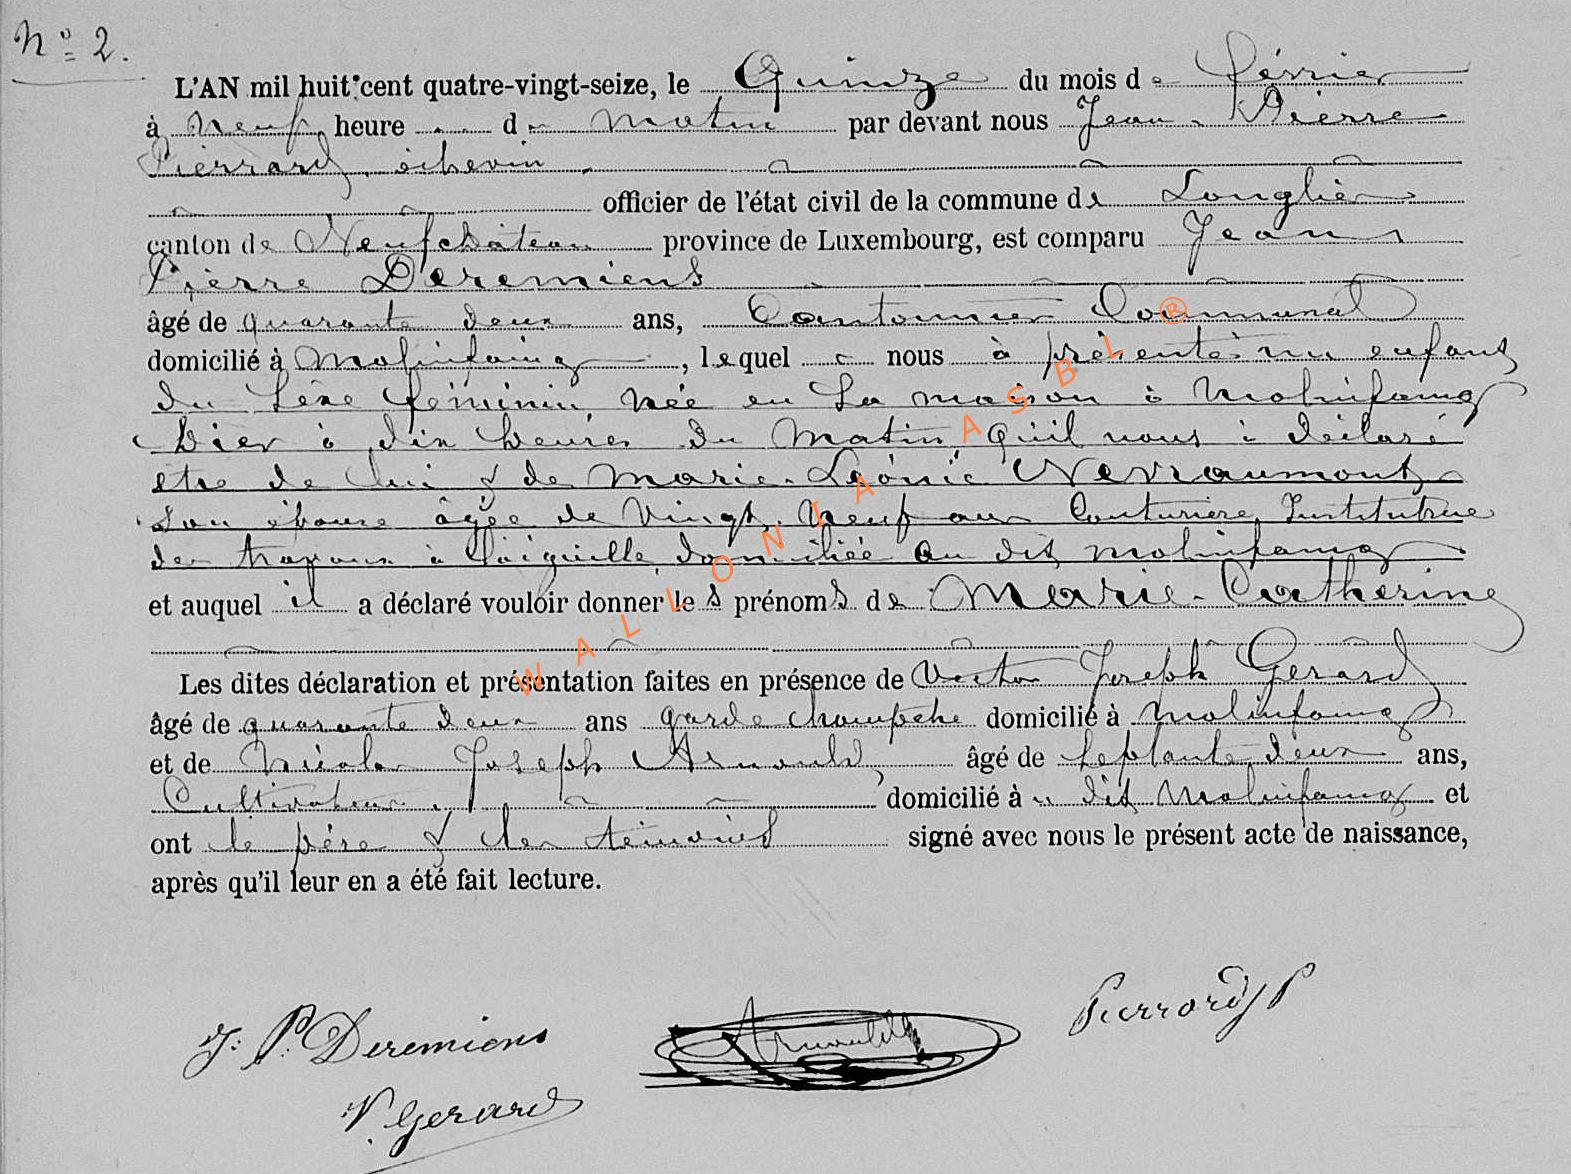 Nº 2.
L'AN mil huit cent quatre-vingt-seize, le Quinze du mois de février
à neuf heure .. du matin par devant nous Jean-Pierre
Pierrard, échevin
officier de l'état civil de la commune de Longlier
canton de Neufchâteau province de Luxembourg, est comparu Jean
Pierre Deremiens
âgé de quarante deux ans, Cantonnier Communal
domicilié à Molinfaing, lequel nous à présenté un enfant
du sexe féminin, née en sa maison à Molinfaing
hier à dix heures du matin, qu'il nous à déclaré
être de lui & de Marie-Léonie Nevraumont
son épouse âgée de vingt-neuf ans Couturière, Institutrice
des travaux à l'aiguille, domiciliée au dit Molinfaing
et auquel il a déclaré vouloir donner les prénoms de Marie-Catherine
Les dites déclaration et présentation faites en présence de Victor Joseph Gerard
âgé de quarante deux ans garde champêtre domicilié à Molinfaing
et de Nicolas Joseph Arnould, âgé de septante deux ans,
Cultivateur, domicilié à u dit Molinfaing et
ont le père & les témoins signé avec nous le présent acte de naissance,
après qu'il leur en a été fait lecture.
J. P. Deremiens Arnould Pierrard JP
V. Gerard
WALLONIA ASBL ®